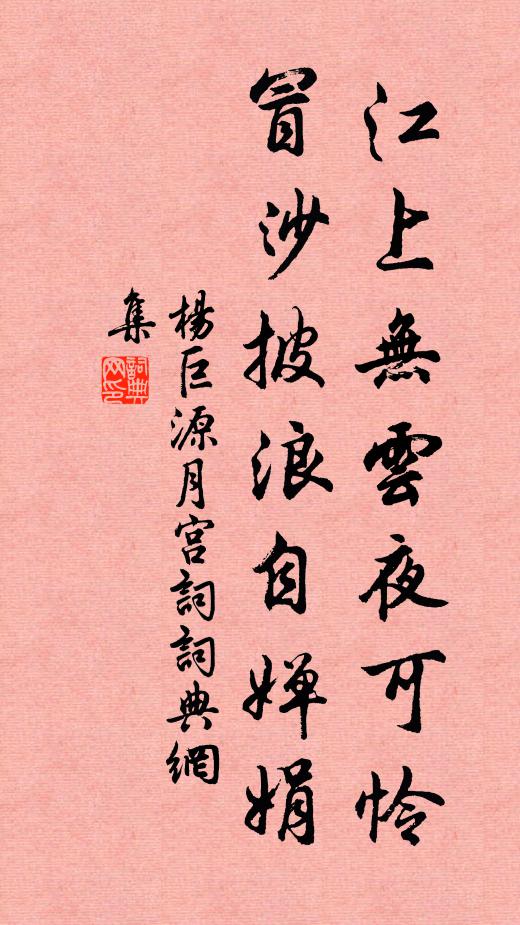 江上無雲夜可憐
冒沙披浪自嬋娟
楊巨源月宮詞詞典網
集
詞典
网印